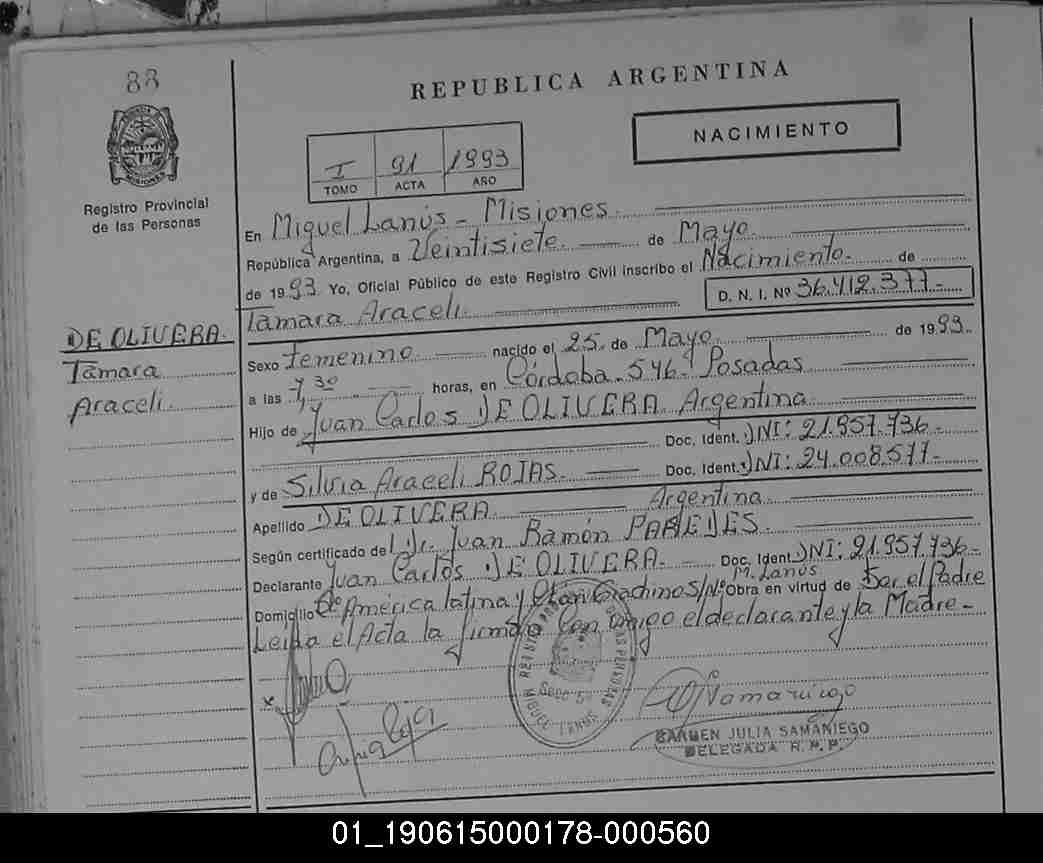 88
REPUBLICA ARGENTINA
NACIMIENTO
I 91 1993
TOMO ACTA AÑO
Registro Provincial
de las Personas
En Miguel Lanús - Misiones.
República Argentina, a Veintisiete. de Mayo.
de 1993 Yo, Oficial Público de este Registro Civil inscribo el Nacimiento. de
Tamara Araceli. D. N. I. Nº 36.412.377-
DE OLIVERA.
Tamara
Araceli.
Sexo Femenino nacido el 25. de Mayo de 1993.
a las 7,30 horas, en Córdoba - 546 - Posadas
Hijo de Juan Carlos DE OLIVERA. Argentina
Doc. Ident. DNI: 21.957.736-
y de Silvia Araceli ROJAS. Doc. Ident. DNI: 24.008.577-
Argentina
Apellido DE OLIVERA
Según certificado de Dr. Juan Ramón PAREDES.
Declarante Juan Carlos DE OLIVERA. - Doc. Ident. DNI: 21.957.736-
M. Lanús
Domicilio América latina y S/Nº Obra en virtud de Ser el Padre
Leida el Acta la firman Conmigo el declarante y la Madre-
MIGUEL LANUS
CARMEN JULIA SAMANIEGO
DELEGADA R. P. P.
01_190615000178-000560